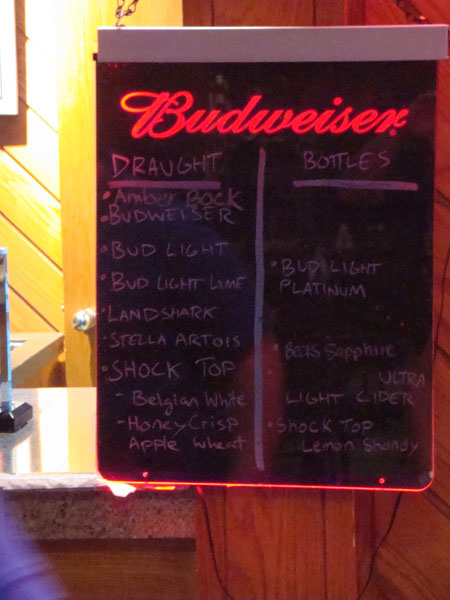 Budweiser
DRAUGHT
• Amber BOCK
• BUDWEISER
• BUD LIGHT
• BUD LIGHT LIME
• LANDSHARK
• STELLA ARTOIS
• SHOCK TOP
- Belgian White
- Honey Crisp
Apple Wheat
BOTTLES
• BUD LIGHT
PLATINUM
• Becks Sapphire
ULTRA
LIGHT CIDER
• SHOCK TOP
Lemon Shandy